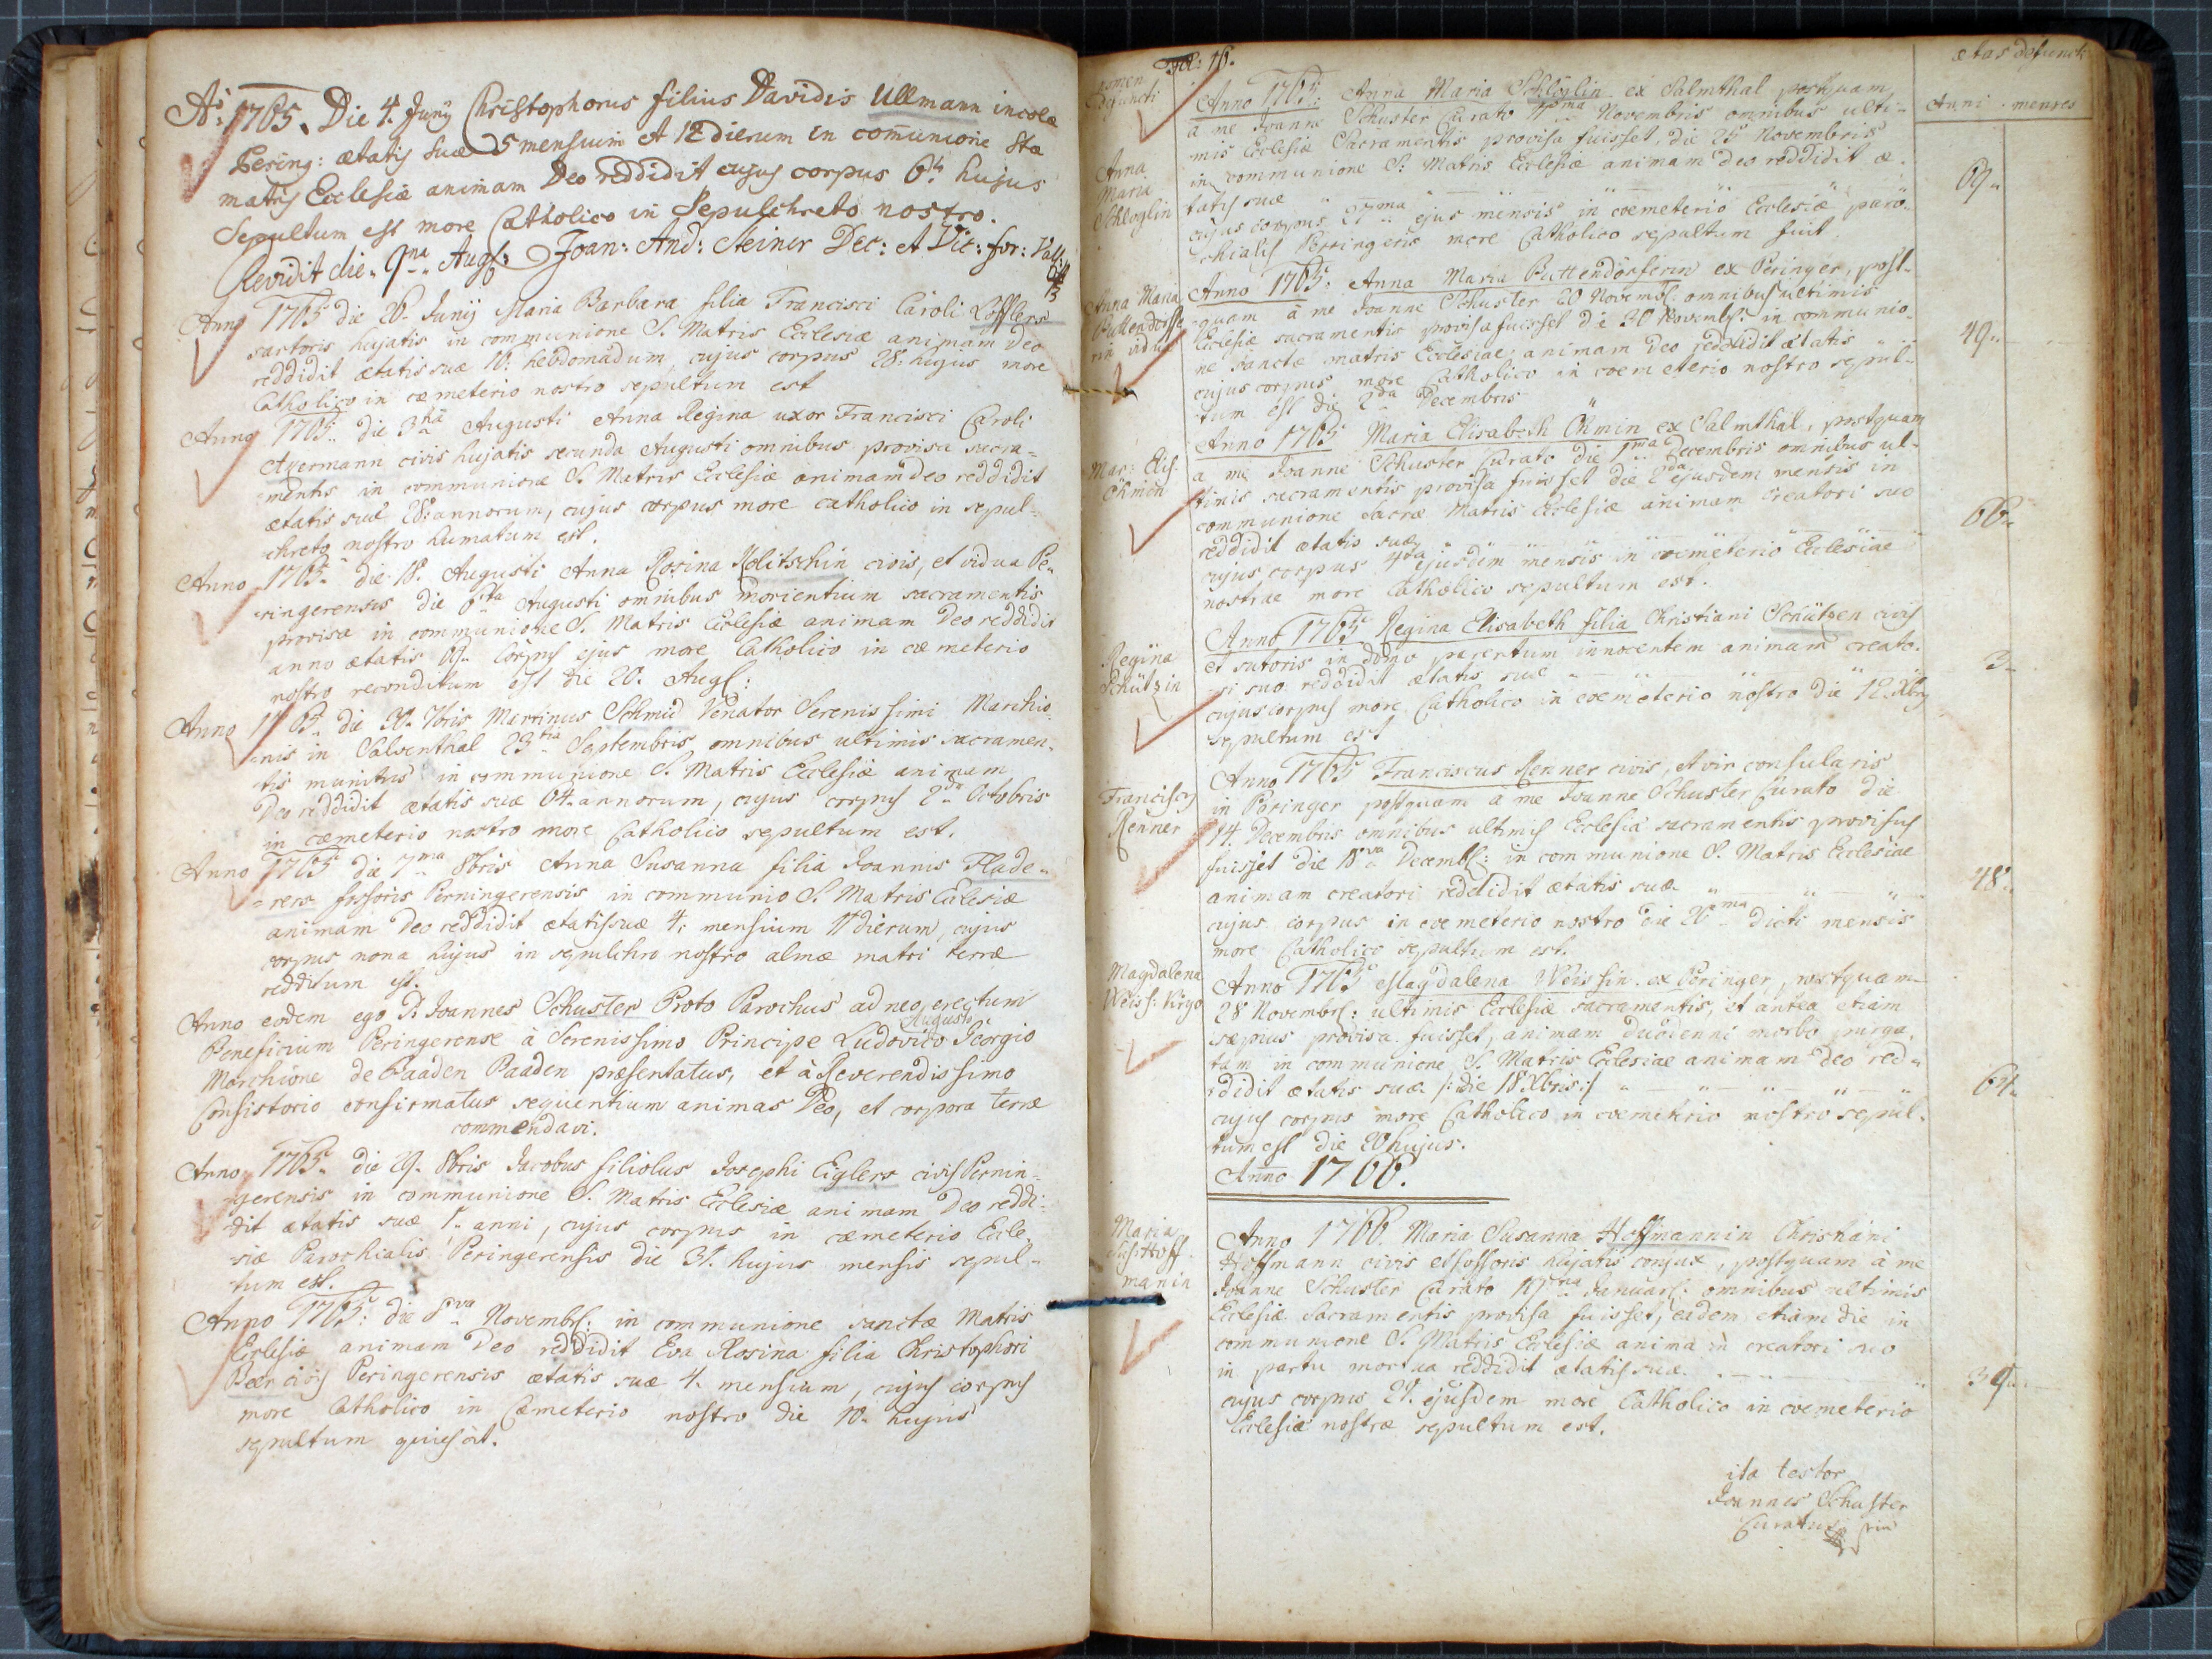 Aõ: 1765. Die 4. Junÿ Christophorus filius Davidis Ullmann incolæ
Pering: ætatis suæ 5 mensium et 12 dierum in comunione Stæ
matris Ecclesiæ animam Deo reddidit cujus corpus 6ti hujus
Sepultum est more Catholico in Sepulchreto nostro.
Revidit die 9na Aug: Joan: And: Steiner Dec: et Vic: for:
Anno 1765 die 26. Junij Maria Barbara filia Francisci Caroli Löfflers
sartoris hujatis in communione S. Matris Ecclesiæ animam Deo
reddidit ætatis suæ 10: hebdomadum, cujus corpus 28: hujus more
Catholico in cæmeterio nostro sepultum est
Anno 1765. die 3tia Augusti Anna Regina uxor Francisci Caroli
Ayermann civis hujatis secunda Augusti omnibus provisa sacra=
mentis in communione S. Matris Ecclesiæ animam Deo reddidit
ætatis suæ 28: annorum, cujus corpus more catholico in sepul=
chreto nostro humatum est.
Anno 1765. die 18. Augusti Anna Rosina Kolitschin civis, et vidua Pe=
ringerensis die 6ta Augusti omnibus morientium sacramentis
provisa in communione S. Matris Ecclesiæ animam Deo reddidit
anno ætatis 69. Corpus ejus more Catholico in cæmeterio
nostro reconditum est die 20. Aug:
Anno 1765. die 30. 7bris Martinus Schmid Venator Serenissimi Marchio=
nis in Salventhal 23tia Septembris omnibus ultimis sacramen=
tis munitus in communione S. Matris Ecclesiæ animam
Deo reddidit ætatis suæ 64. annorum, cujus corpus 2da Octobris
in cæmeterio nostro more Catholico sepultum est.
Anno 1765 die 7ma 8bris Anna Susanna filia Joannis Flade=
rers fossoris Perningerensis in communio S. Matris Eclesiæ
animam Deo reddidit ætatis suæ 4. mensium 11 dierum, cujus
corpus nona hujus in sepulchro nostro almæ matri terræ
redditum est.
Anno eodem ego P. Joannes Schuster Proto Parochus ad neo erectum
Beneficium Peringerense à Serenissimo Principe Ludovico Georgio
Augusto
Marchione de Baaden Baaden præsentatus, et à Reverendissimo
Consistorio confirmatus sequentium animas Deo, et corpora terræ
commendavi.
Anno 1765. die 29. 8bris Jacobus filiolus Josephi Eiglers civis Pernin=
gerensis in communione S. Matris Ecclesiæ animam Deo reddi=
dit ætatis suæ 1. anni, cujus corpus in cæmeterio Eccle=
siæ Parochialis Peringerensis die 31. hujus mensis sepul=
tum est.
Anno 1765: die 8va Novembr: in communione sanctæ Matris
Ecclesiæ animam Deo reddidit Eva Rosina filia Christophori
Beer civis Peringerensis ætatis suæ 4. mensium, cujus corpus
more Catholico in Cæmeterio nostro die 10. hujus
sepultum quiescit.
Fol: 16.
nomen
defuncti
ætas defuncti
Anni
menses
Anno 1765: Anna Maria Schloglin ex Salmthal, postquam
a me Joanne Schuster Curato Novembris omnibus ulti=
mis Ecclesiæ Sacramentis provisa fuisset, die 25 Novembris
in communione S: Matris Ecclesiæ animam Deo reddidit æ=
tatis suæ
cujus corpus 27ma ejus mensis in cœmeterio Ecclesiæ paro=
chialis Perringeris more Catholico sepultum fuit.
Anna
Maria
Schloglin
69.
Anno 1765: Anna Maria Buttendörferin ex Peringer, post=
quam à me Joanne Schuster 20 Novemb: omnibus ultimis
Ecclesiæ sacramentis provisa fuisset die 30 Novemb: in communio=
ne sanctæ matris Ecclesiae animam Deo reddidit ætatis
cujus corpus more Catholico in coemeterio nostro sepul=
tum est die 2da Decembris
Anna Maria
Buttendörffe
rin vidua
49.
Anno 1765 Maria Elisabeth Öhmin ex Salmthal, postquam
a me Joanne Schuster Curato die 1ma Decembris omnibus ul=
timis sacramentis provisa fuisset die 2da ejusdem mensis in
communione Sacræ Matris Ecclesiæ animam Creatori suo
reddidit ætatis suæ
cujus corpus 4ta ejusdem mensis in coemeterio Ecclesiae
nostrae more Catholico sepultum est.
Mar: Elis:
Öhmin
66.
Anno 1765 Regina Elisabeth filia Christiani Schützen civis
et sutoris in domo parentum innocentem animam creato=
ri suo reddidit ætatis suæ
cujus corpus more Catholico in coemeterio nostro die 12 Xbris
sepultum est
Regina
Schützin
3.
Anno 1765 Franciscus Renner civis, et vir consularis
in Päringer postquam a me Joanne Schuster Curato die
14. Decembris omnibus ultimis Ecclesiæ sacramentis provisus
fuisset die 18va Decemb: in communione S. Matris Ecclesiae
animam creatori reddidit ætatis suæ
cujus corpus in coemeterio nostro die 20ma dicti mensis
more Catholico sepultum est.
Franciscus
Renner
48.
Anno 1765 Magdalena Weissin ex Peringer, postquam
28 Novembr: ultimis Ecclesiæ sacramentis, et antea etiam
sæpius provisa fuisset, animam duodenni morbo purga=
tam in communione S. Matris Ecclesiae animam Deo red=
didit ætatis suæ /: die 18 Xbris :/
cujus corpus more Catholico in coemeterio nostro sepul=
tum est die 20 hujus.
Magdalena
Weiss: virgo
64.
Anno 1766.
Anno 1766. Maria Susanna Hoffmannin Christiani
Hoffmann civis et fossoris hujatis conjux, postquam à me
Joanne Schuster Curato 19na Januar: omnibus ultimis
Ecclesiæ Sacramentis provisa fuisset, eadem etiam die in
communione S. Matris Ecclesiæ animam creatori suo
in partu mortua reddidit ætatis suæ
cujus corpus 21. ejusdem more Catholico in coemeterio
Ecclesiæ nostræ sepultum est.
Maria
Sus: Hoff
manin
39.
ita testor
Joannes Schuster
Curatus